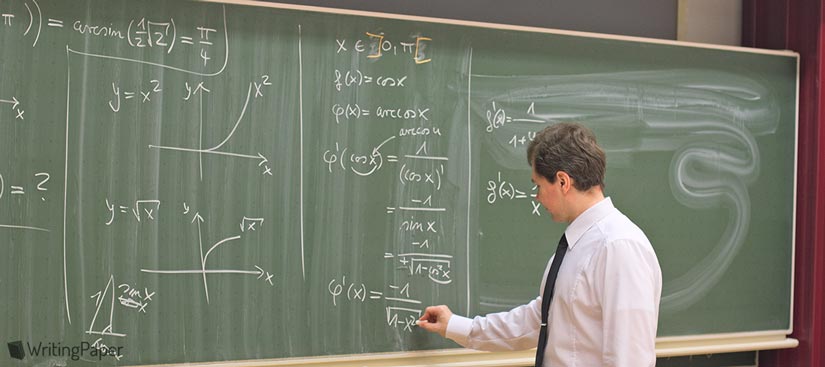 π)) = arcsin(½√2) = π/4
x
y = x²
y
x²
x
) = ?
y = √x
y
√x
x
1
x ∈ ]0, π[
f(x) = cos x
φ(x) = arccos x
φ'(cos x) = 1/(cos x)'
= -1/sin x
= -1/+√(1-cos²x)
φ'(x) = -1/√(1-x²)
f'(x) =
WritingPaper